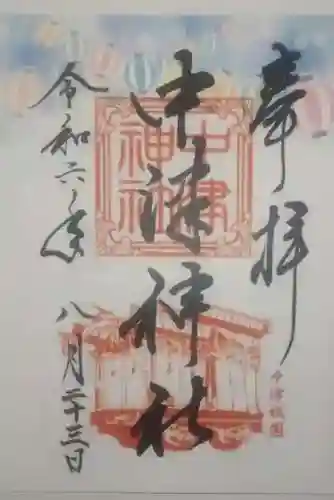 奉拝
中津神社
令和六年
八月二十三日
中津神社